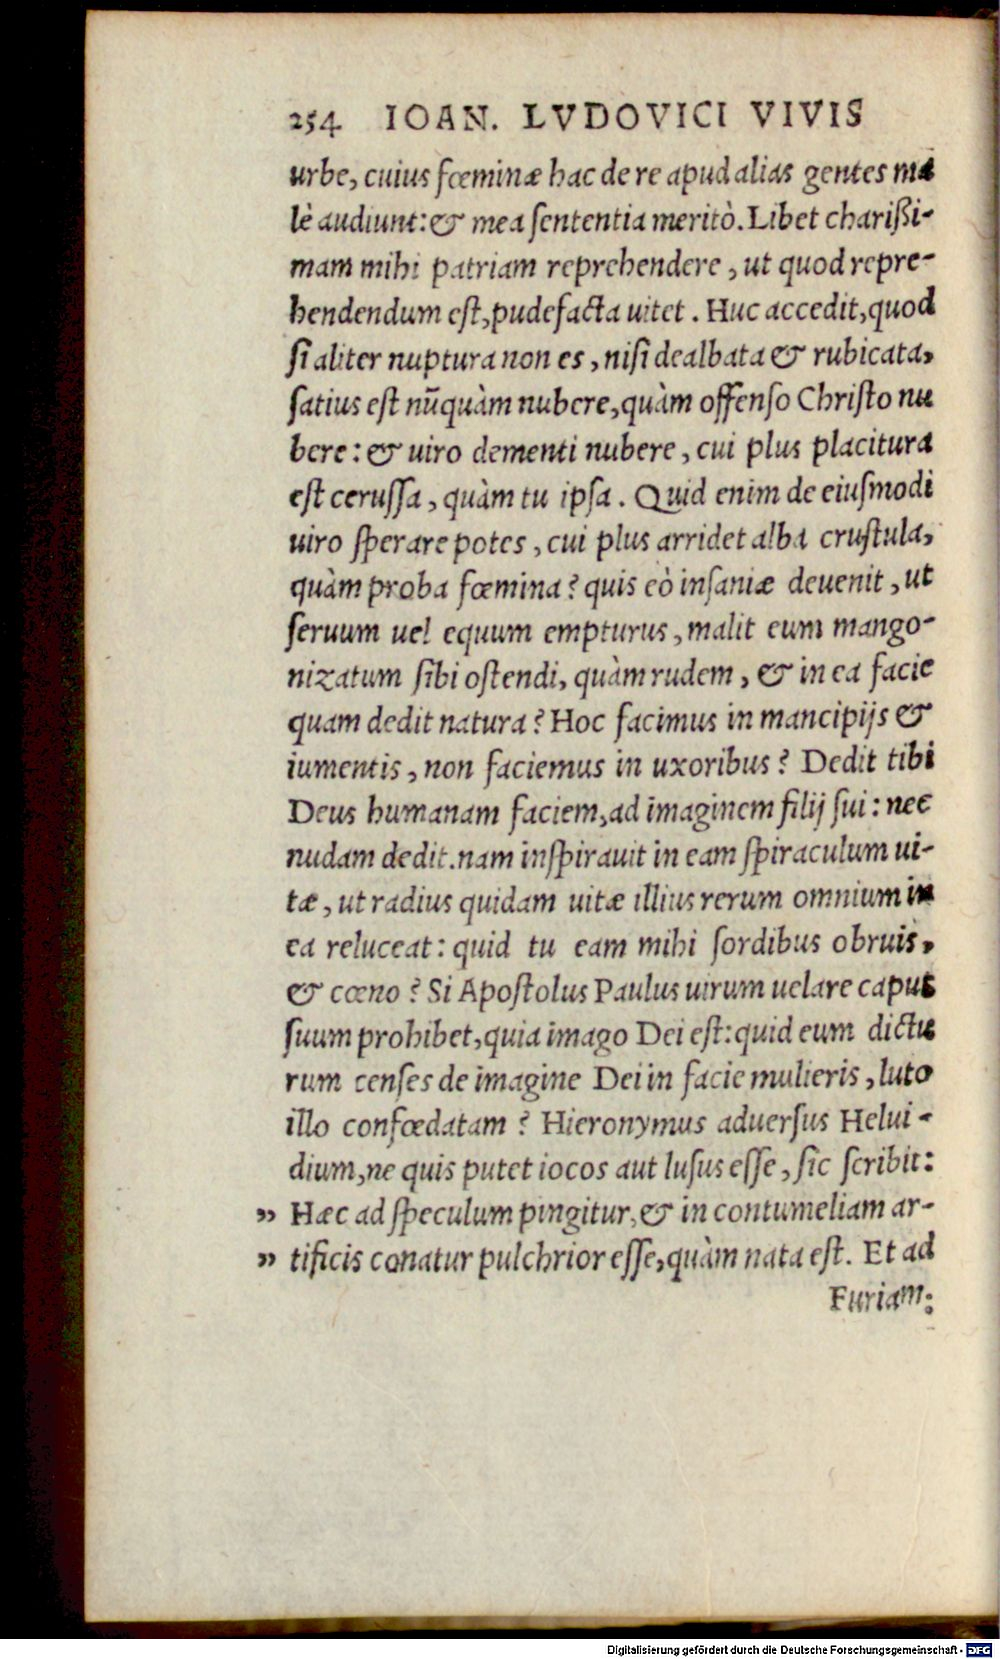 254 IOAN. LVDOVICI VIVIS
urbe, cuius fœminæ hac de re apud alias gentes ma
lè audiunt: & mea ſententia meritò. Libet charißi-
mam mihi patriam reprehendere, ut quod repre-
hendendum eſt, pudefacta uitet. Huc accedit, quod
ſi aliter nuptura non es, niſi dealbata & rubicata,
ſatius eſt nūquàm nubere, quàm offenſo Chriſto nu
bere: & uiro dementi nubere, cui plus placitura
eſt ceruſſa, quàm tu ipſa. Quid enim de eiuſmodi
uiro ſperare potes, cui plus arridet alba cruſtula,
quàm proba fœmina? quis eò inſaniæ deuenit, ut
ſeruum uel equum empturus, malit eum mango-
nizatum ſibi oſtendi, quàm rudem, & in ea facie
quam dedit natura? Hoc facimus in mancipijs &
iumentis, non faciemus in uxoribus? Dedit tibi
Deus humanam faciem, ad imaginem filij ſui: nec
nudam dedit. nam inſpirauit in eam ſpiraculum ui-
tæ, ut radius quidam uitæ illius rerum omnium in
ea reluceat: quid tu eam mihi ſordibus obruis,
& cœno? Si Apoſtolus Paulus uirum uelare caput
ſuum prohibet, quia imago Dei eſt: quid eum dictu
rum cenſes de imagine Dei in facie mulieris, luto
illo confœdatam? Hieronymus aduerſus Helui-
dium, ne quis putet iocos aut luſus eſſe, ſic ſcribit:
„ Hæc ad ſpeculum pingitur, & in contumeliam ar-
„ tificis conatur pulchrior eſſe, quàm nata eſt. Et ad
Furiam:
Digitalisierung gefördert durch die Deutsche Forschungsgemeinschaft - DFG